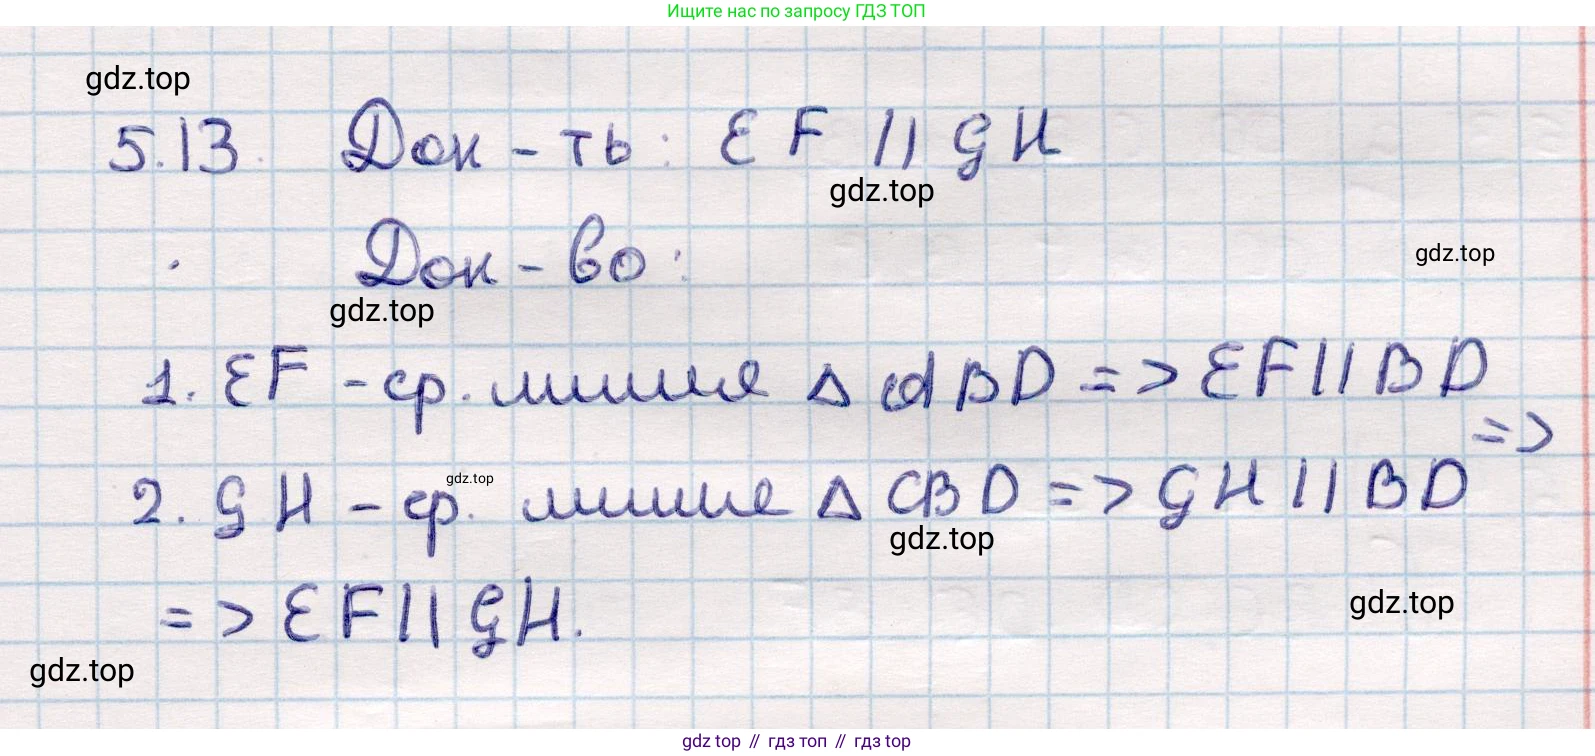 Ищите нас по запросу ГДЗ ТОП
gdz.top
5.13. Док-ть: EF || GH
gdz.top
Док-во:
gdz.top
gdz.top
1. EF - ср. линия Δ ABD => EF || BD
=>
gdz.top
2. GH - ср. линия Δ CBD => GH || BD
gdz.top
=> EF || GH.
gdz.top
gdz.top
gdz top // гдз топ // гдз top